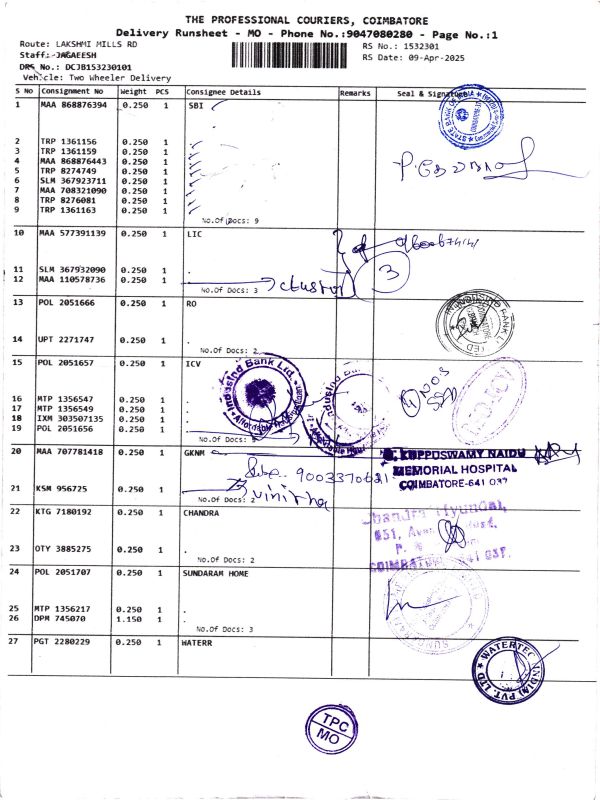 THE PROFESSIONAL COURIERS, COIMBATORE
Delivery Runsheet - MO - Phone No.:9047080280 - Page No.:1
Route: LAKSHMI MILLS RD
RS No.: 1532301
Staff: JAGAEESH
RS Date: 09-Apr-2025
DRS No.: DCJB153230101
Vehicle: Two Wheeler Delivery
S No Consignment No Weight PCS Consignee Details Remarks Seal & Signature
1 MAA 868876394 0.250 1 SBI
STATE BANK OF INDIA
2 TRP 1361156 0.250 1
3 TRP 1361159 0.250 1
4 MAA 868876443 0.250 1
5 TRP 8274749 0.250 1
6 SLM 367923711 0.250 1
7 MAA 708321090 0.250 1
8 TRP 8276081 0.250 1
9 TRP 1361163 0.250 1
No.Of Docs: 9
10 MAA 577391139 0.250 1 LIC
11 SLM 367932090 0.250 1 .
12 MAA 110578736 0.250 1
No.Of Docs: 3
3
13 POL 2051666 0.250 1 RO
INDUSIND BANK LIMITED
14 UPT 2271747 0.250 1 .
No.Of Docs: 2
15 POL 2051657 0.250 1 ICV
IndusInd Bank Ltd.
4 NOS
16 MTP 1356547 0.250 1 .
17 MTP 1356549 0.250 1 .
18 IXM 303507135 0.250 1 .
19 POL 2051656 0.250 1 .
No.Of Docs: 5
20 MAA 707781418 0.250 1 GKNM
G. KUPPUSWAMY NAIDU
MEMORIAL HOSPITAL
COIMBATORE-641 037
9003370621
Vinitha
21 KSM 956725 0.250 1 .
No.Of Docs: 2
22 KTG 7180192 0.250 1 CHANDRA
Chandra Hyundai,
23 OTY 3885275 0.250 1 .
No.Of Docs: 2
24 POL 2051707 0.250 1 SUNDARAM HOME
25 MTP 1356217 0.250 1 .
26 DPM 745070 1.150 1 .
No.Of Docs: 3
27 PGT 2280229 0.250 1 WATERR
WATERTEC (INDIA) PVT. LTD
TPC
MO